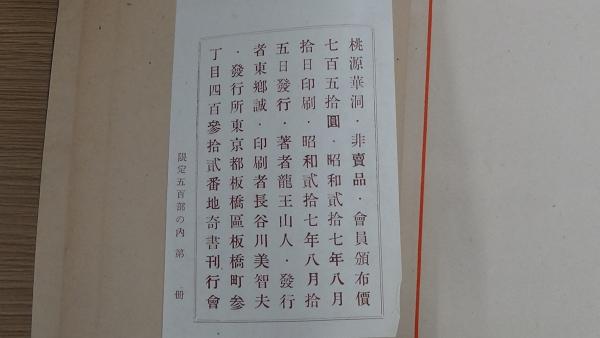 桃源華洞・非賣品・會員頒布價
七百五拾圓・昭和貳拾七年八月
拾日印刷・昭和貳拾七年八月拾
五日發行・著者龍王山人・發行
者東鄉誠・印刷者長谷川美智夫
・發行所東京都板橋區板橋町参
丁目四百參拾貳番地奇書刊行會
限定五百部の内 第 冊